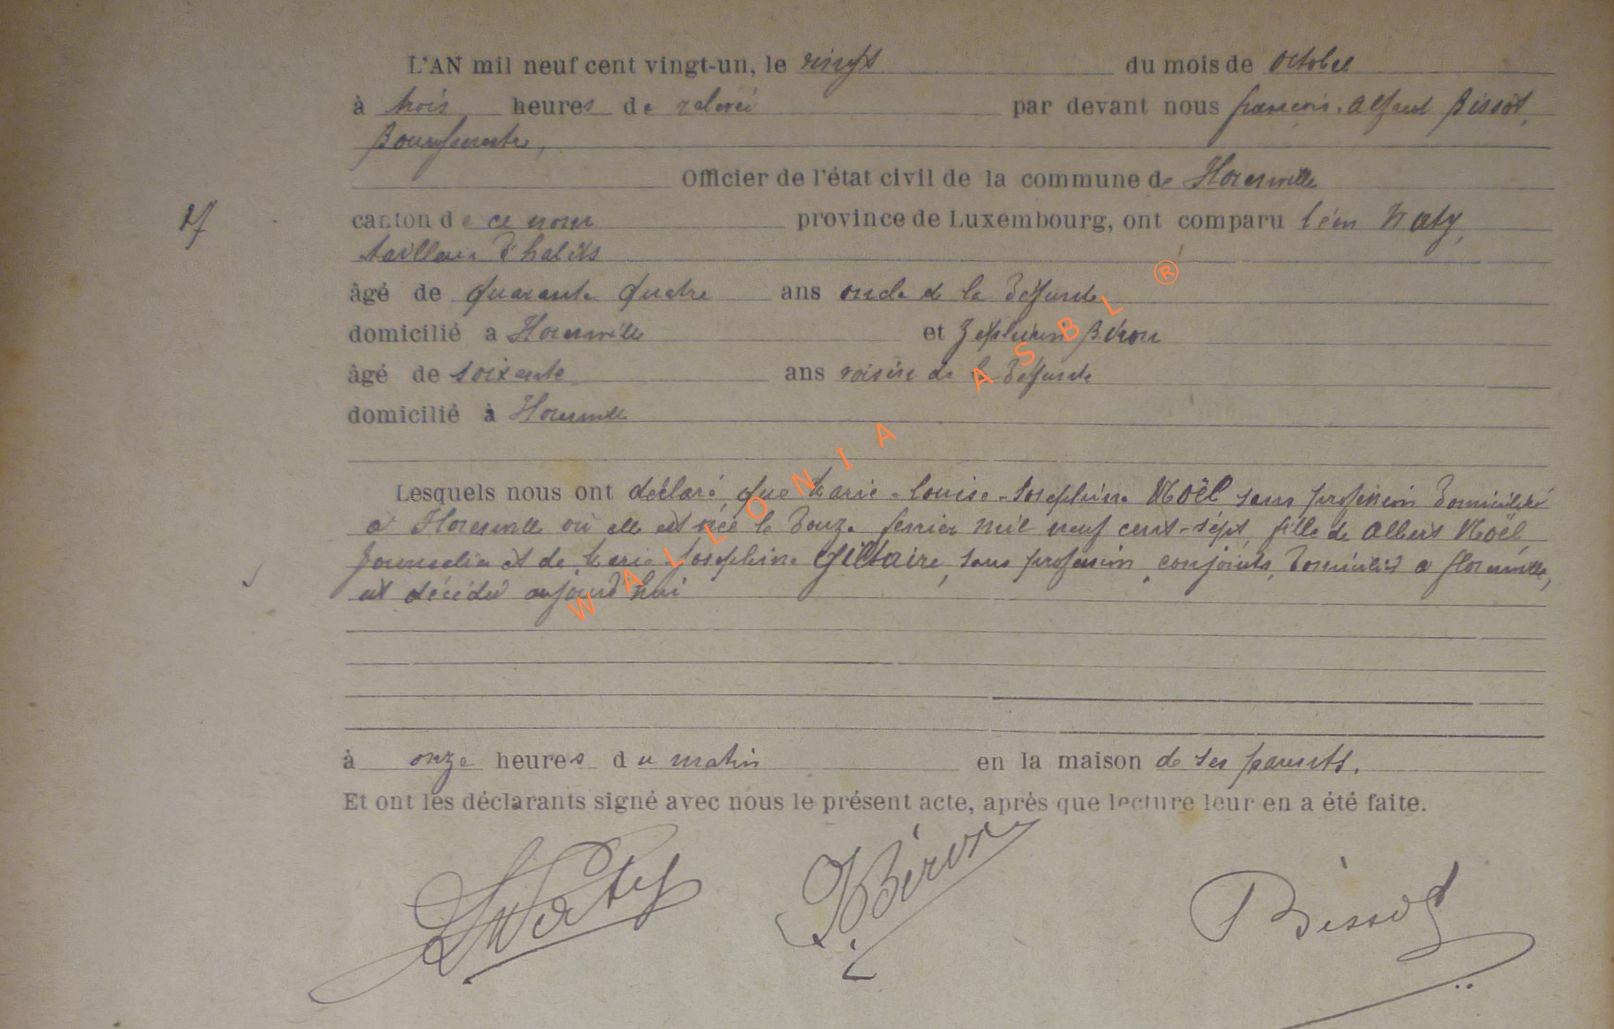 L'AN mil neuf cent vingt-un, le vingt du mois de octobre
à trois heures de relevée par devant nous françois, Alfred Bissot,
Bourgmestre,
Officier de l'état civil de la commune de Florenville
canton de ce nom province de Luxembourg, ont comparu Léon Waty,
tailleur d'habits
âgé de quarante quatre ans oncle de la défunte
domicilié à Florenville et Zéphirin Béron
âgé de soixante ans voisin de la défunte
domicilié à Florenville
Lesquels nous ont déclaré que Marie-Louise-Joséphine Noël sans profession domiciliée
à Florenville où elle est née le douze février mil neuf cent-sept, fille de Albert Noël
journalier et de Marie-Joséphine Giltaire, sans profession, conjoints, domiciliés à florenville,
est décédée aujourd'hui
à onze heures du matin en la maison de ses parents.
Et ont les déclarants signé avec nous le présent acte, après que lecture leur en a été faite.
LWaty ZBéron Bissot
WALLONIA ASBL ®